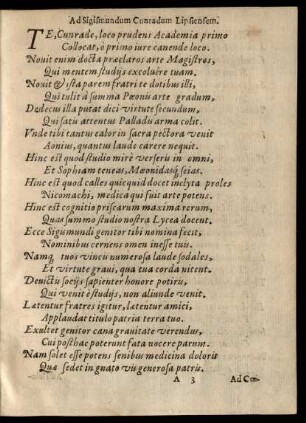 Ad Sigismundum Cunradum Lipsiensem.
TE, Cunrade, loco prudens Academia primo
Collocat, ô primo iure canende loco.
Nouit enim docta præclaros arte Magistros,
Qui mentem studijs excoluêre tuam.
Nouit & ista parem fratri te dotibus illi,
Qui tulit à summa Pæonis arte gradum,
Dedecus illa putat dici virtute secundum,
Qui satis attentus Palladis arma colit.
Vnde tibi tantus calor in sacra pectora venit
Aonius, quantus laude carere nequit.
Hinc est quod studio mirè verseris in omni,
Et Sophiam teneas, Mæonidasq́; seias.
Hinc est quod calles quicquid docet inclyta proles
Nicomachi, medica qui fuit arte potens.
Hinc est cognitio priscarum maxima rerum,
Quas summo studio nostra Lycea docent.
Ecce Sigismundi genitor tibi nomina fecit,
Nominibus cernens omen inesse tuis.
Namq; tuos vincis numerosa laude sodales,
Et virtute graui, qua tua corda nitent.
Deuictis socijs sapienter honore potiris,
Qui venit è studijs, non aliunde venit.
Lætentur fratres igitur, lætentur amici,
Applaudat titulo patria terra tuo.
Exultet genitor cana grauitate verendus,
Cui posthac poterunt fata nocere parum.
Nam solet esse potens senibus medicina doloris
Quæ sedet in gnato vis generosa patris.
A 3 Ad Co=